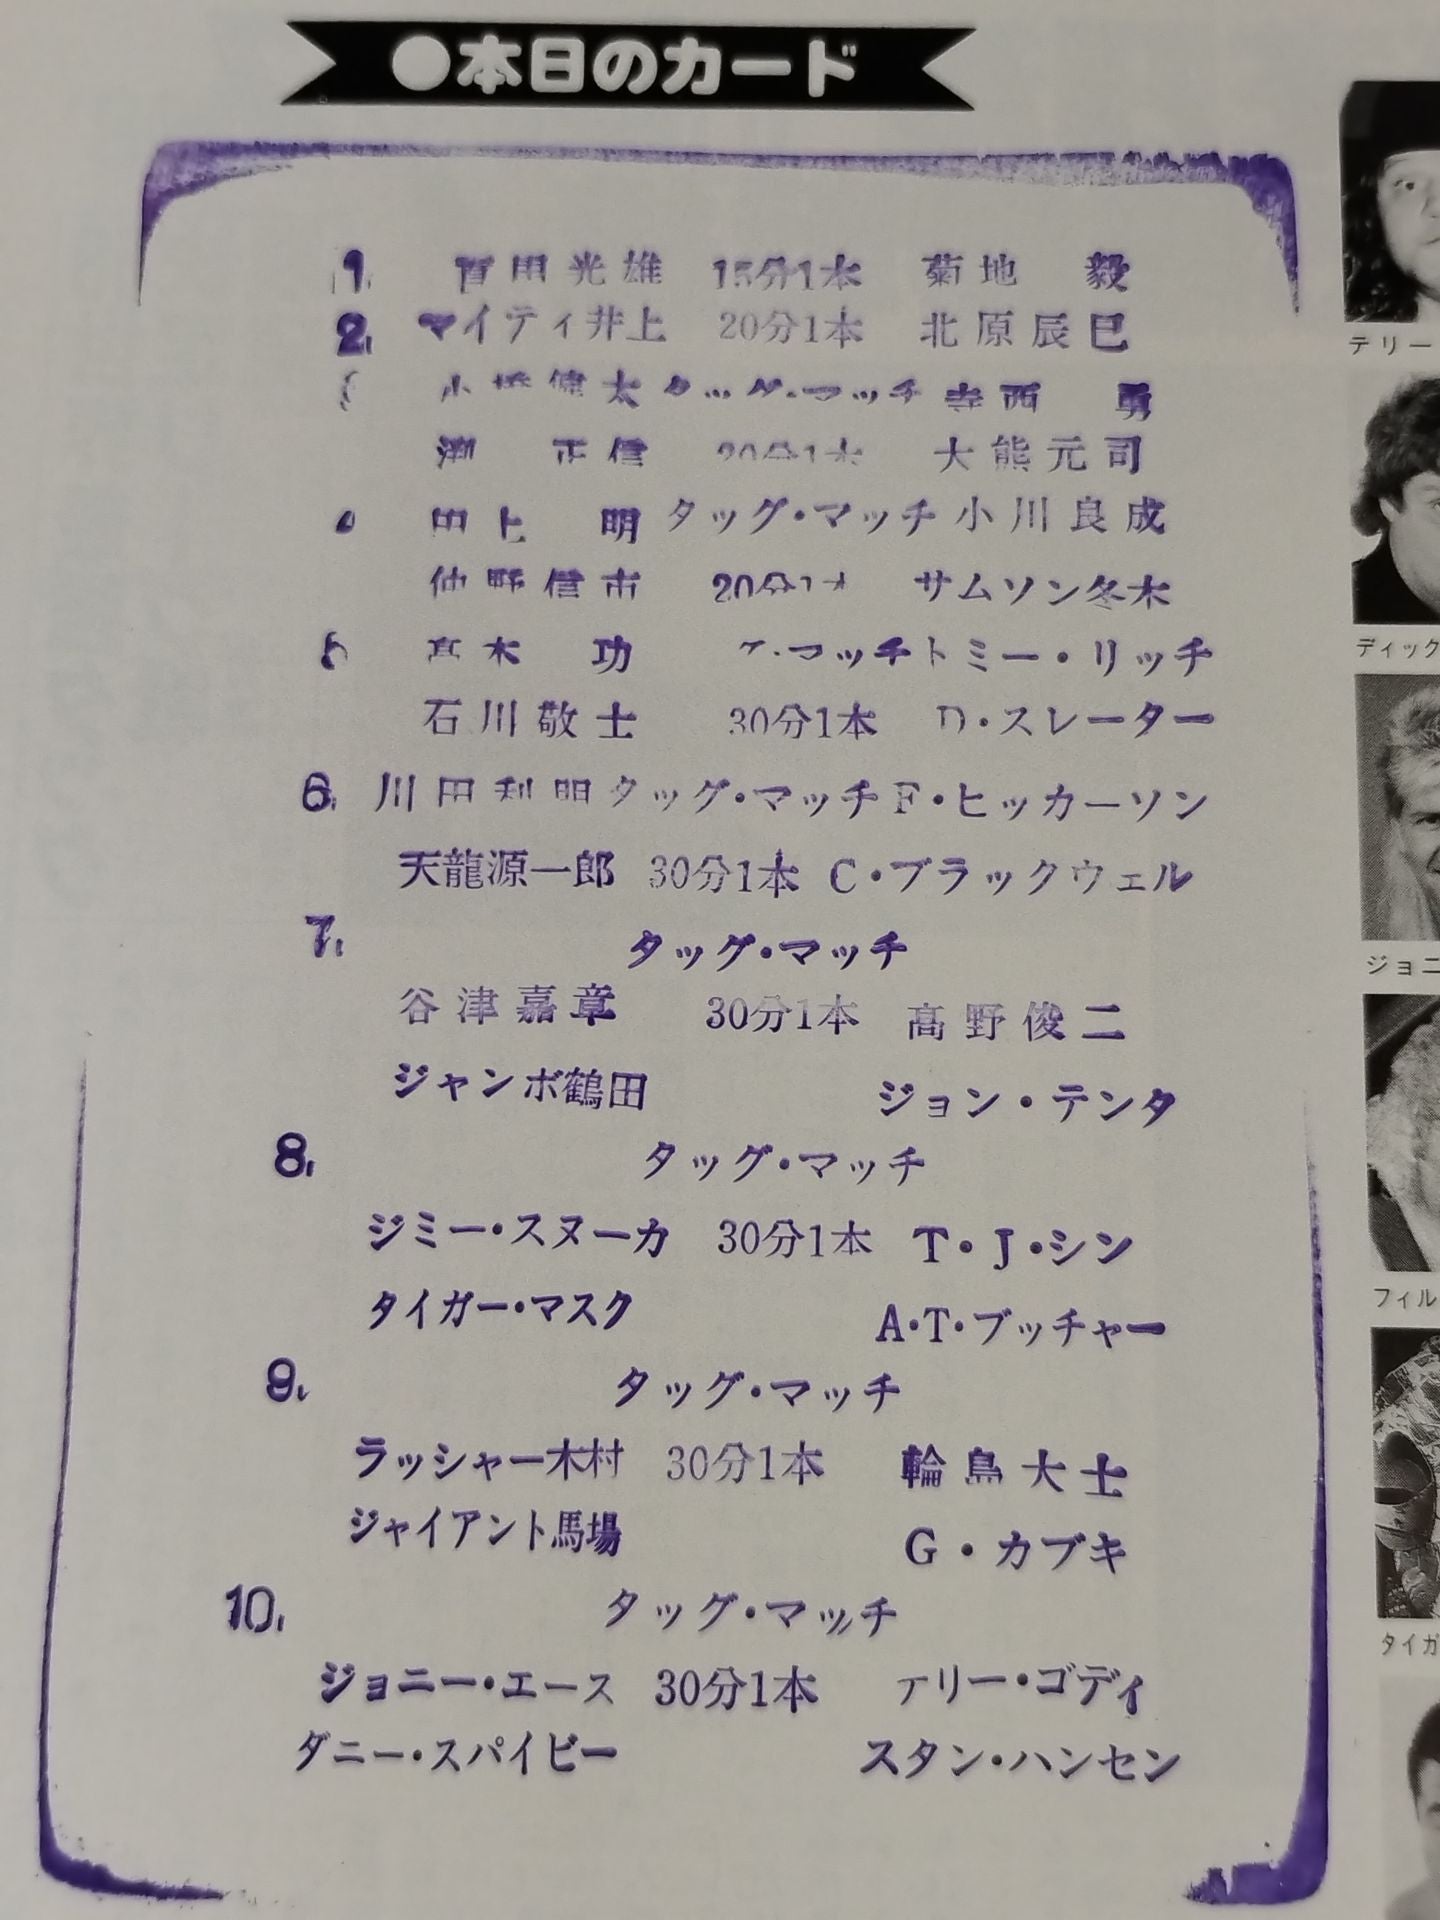 ●本日のカード
1. 百田光雄 15分1本 菊地 毅
2. マイティ井上 20分1本 北原辰巳
小橋健太 タッグ・マッチ 寺西 勇
渕 正信 20分1本 大熊元司
田上 明 タッグ・マッチ 小川良成
仲野信市 20分1本 サムソン冬木
高木 功 マッチ トミー・リッチ
石川敬士 30分1本 D・スレーター
6. 川田利明 タッグ・マッチ F・ヒッカーソン
天龍源一郎 30分1本 C・ブラックウェル
7. タッグ・マッチ
谷津嘉章 30分1本 髙野俊二
ジャンボ鶴田 ジョン・テンタ
8. タッグ・マッチ
ジミー・スヌーカ 30分1本 T・J・シン
タイガー・マスク A・T・ブッチャー
9. タッグ・マッチ
ラッシャー木村 30分1本 輪島大士
ジャイアント馬場 G・カブキ
10. タッグ・マッチ
ジョニー・エース 30分1本 テリー・ゴディ
ダニー・スパイビー スタン・ハンセン
テリー
ディック
ジョニ
フィル
タイガ